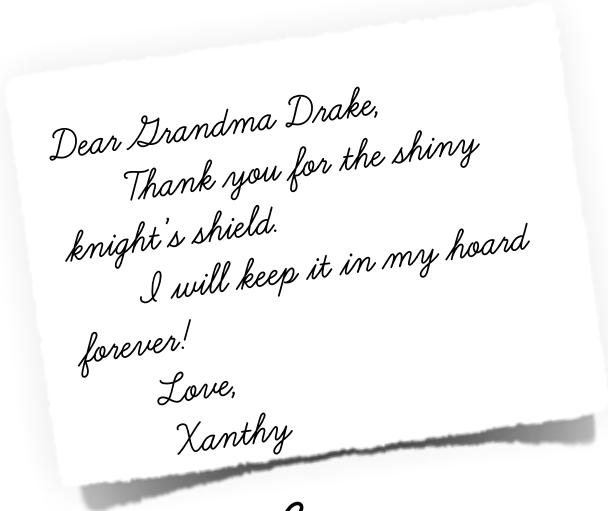 Dear Grandma Drake,
Thank you for the shiny
knight's shield.
I will keep it in my hoard
forever!
Love,
Xanthy